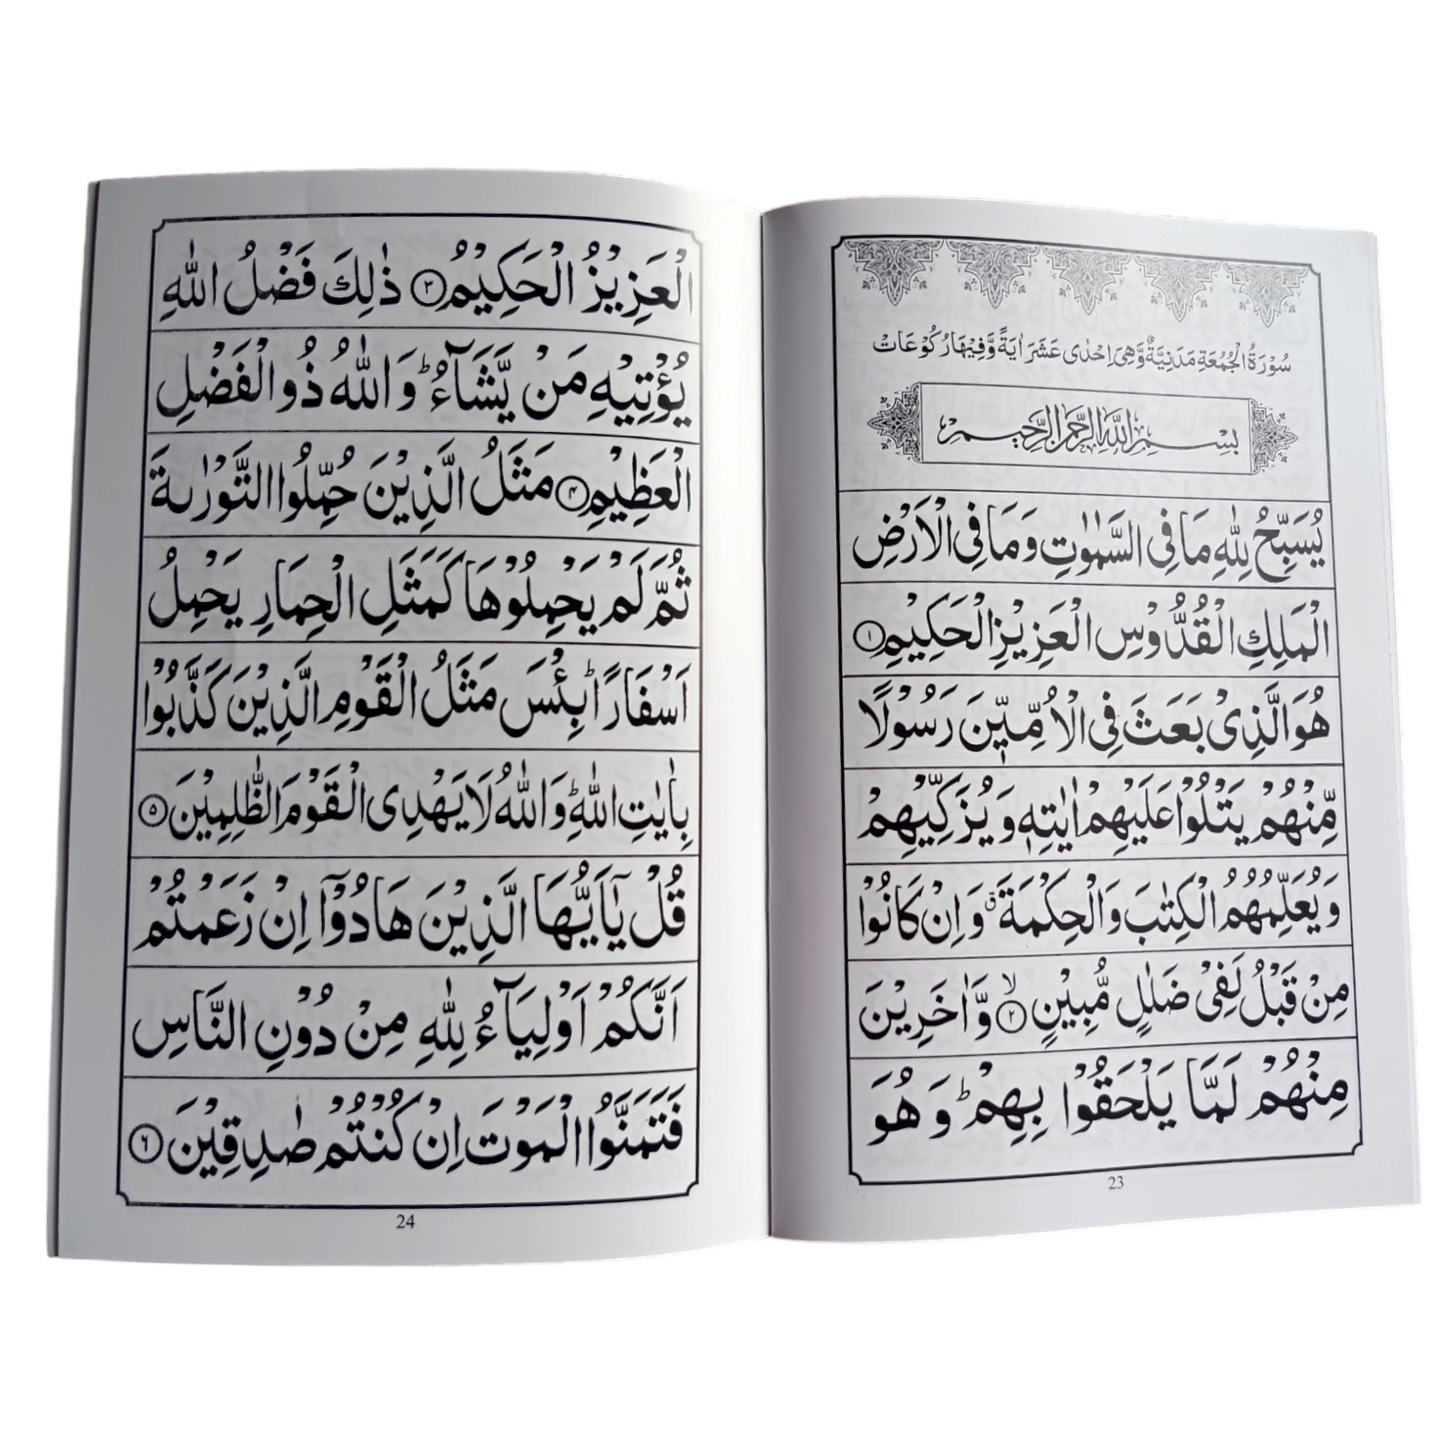 سُوْرَةُ الْجُمُعَةِ مَدَنِيَّةٌ وَّهِىَ اِحْدٰى عَشَرَ اٰيَةً وَّفِيْهَا رُكُوْعَاتْ
بِسْمِ اللّٰهِ الرَّحْمٰنِ الرَّحِيْمِ
يُسَبِّحُ لِلّٰهِ مَا فِى السَّمٰوٰتِ وَمَا فِى الْاَرْضِ
الْمَلِكِ الْقُدُّوْسِ الْعَزِيْزِ الْحَكِيْمِ ۱
هُوَ الَّذِىْ بَعَثَ فِى الْاُمِّيّٖنَ رَسُوْلًا
مِّنْهُمْ يَتْلُوْا عَلَيْهِمْ اٰيٰتِهٖ وَيُزَكِّيْهِمْ
وَيُعَلِّمُهُمُ الْكِتٰبَ وَالْحِكْمَةَ ۗ وَاِنْ كَانُوْا
مِنْ قَبْلُ لَفِىْ ضَلٰلٍ مُّبِيْنٍ ۲ ۙ وَّاٰخَرِيْنَ
مِنْهُمْ لَمَّا يَلْحَقُوْا بِهِمْ ؕ وَهُوَ
23
الْعَزِيْزُ الْحَكِيْمُ ۳ ذٰلِكَ فَضْلُ اللّٰهِ
يُؤْتِيْهِ مَنْ يَّشَآءُ ؕ وَاللّٰهُ ذُو الْفَضْلِ
الْعَظِيْمِ ۴ مَثَلُ الَّذِيْنَ حُمِّلُوا التَّوْرٰىةَ
ثُمَّ لَمْ يَحْمِلُوْهَا كَمَثَلِ الْحِمَارِ يَحْمِلُ
اَسْفَارًا ؕ بِئْسَ مَثَلُ الْقَوْمِ الَّذِيْنَ كَذَّبُوْا
بِاٰيٰتِ اللّٰهِ ؕ وَاللّٰهُ لَا يَهْدِى الْقَوْمَ الظّٰلِمِيْنَ ۵
قُلْ يٰٓاَيُّهَا الَّذِيْنَ هَادُوْٓا اِنْ زَعَمْتُمْ
اَنَّكُمْ اَوْلِيَآءُ لِلّٰهِ مِنْ دُوْنِ النَّاسِ
فَتَمَنَّوُا الْمَوْتَ اِنْ كُنْتُمْ صٰدِقِيْنَ ۶
24